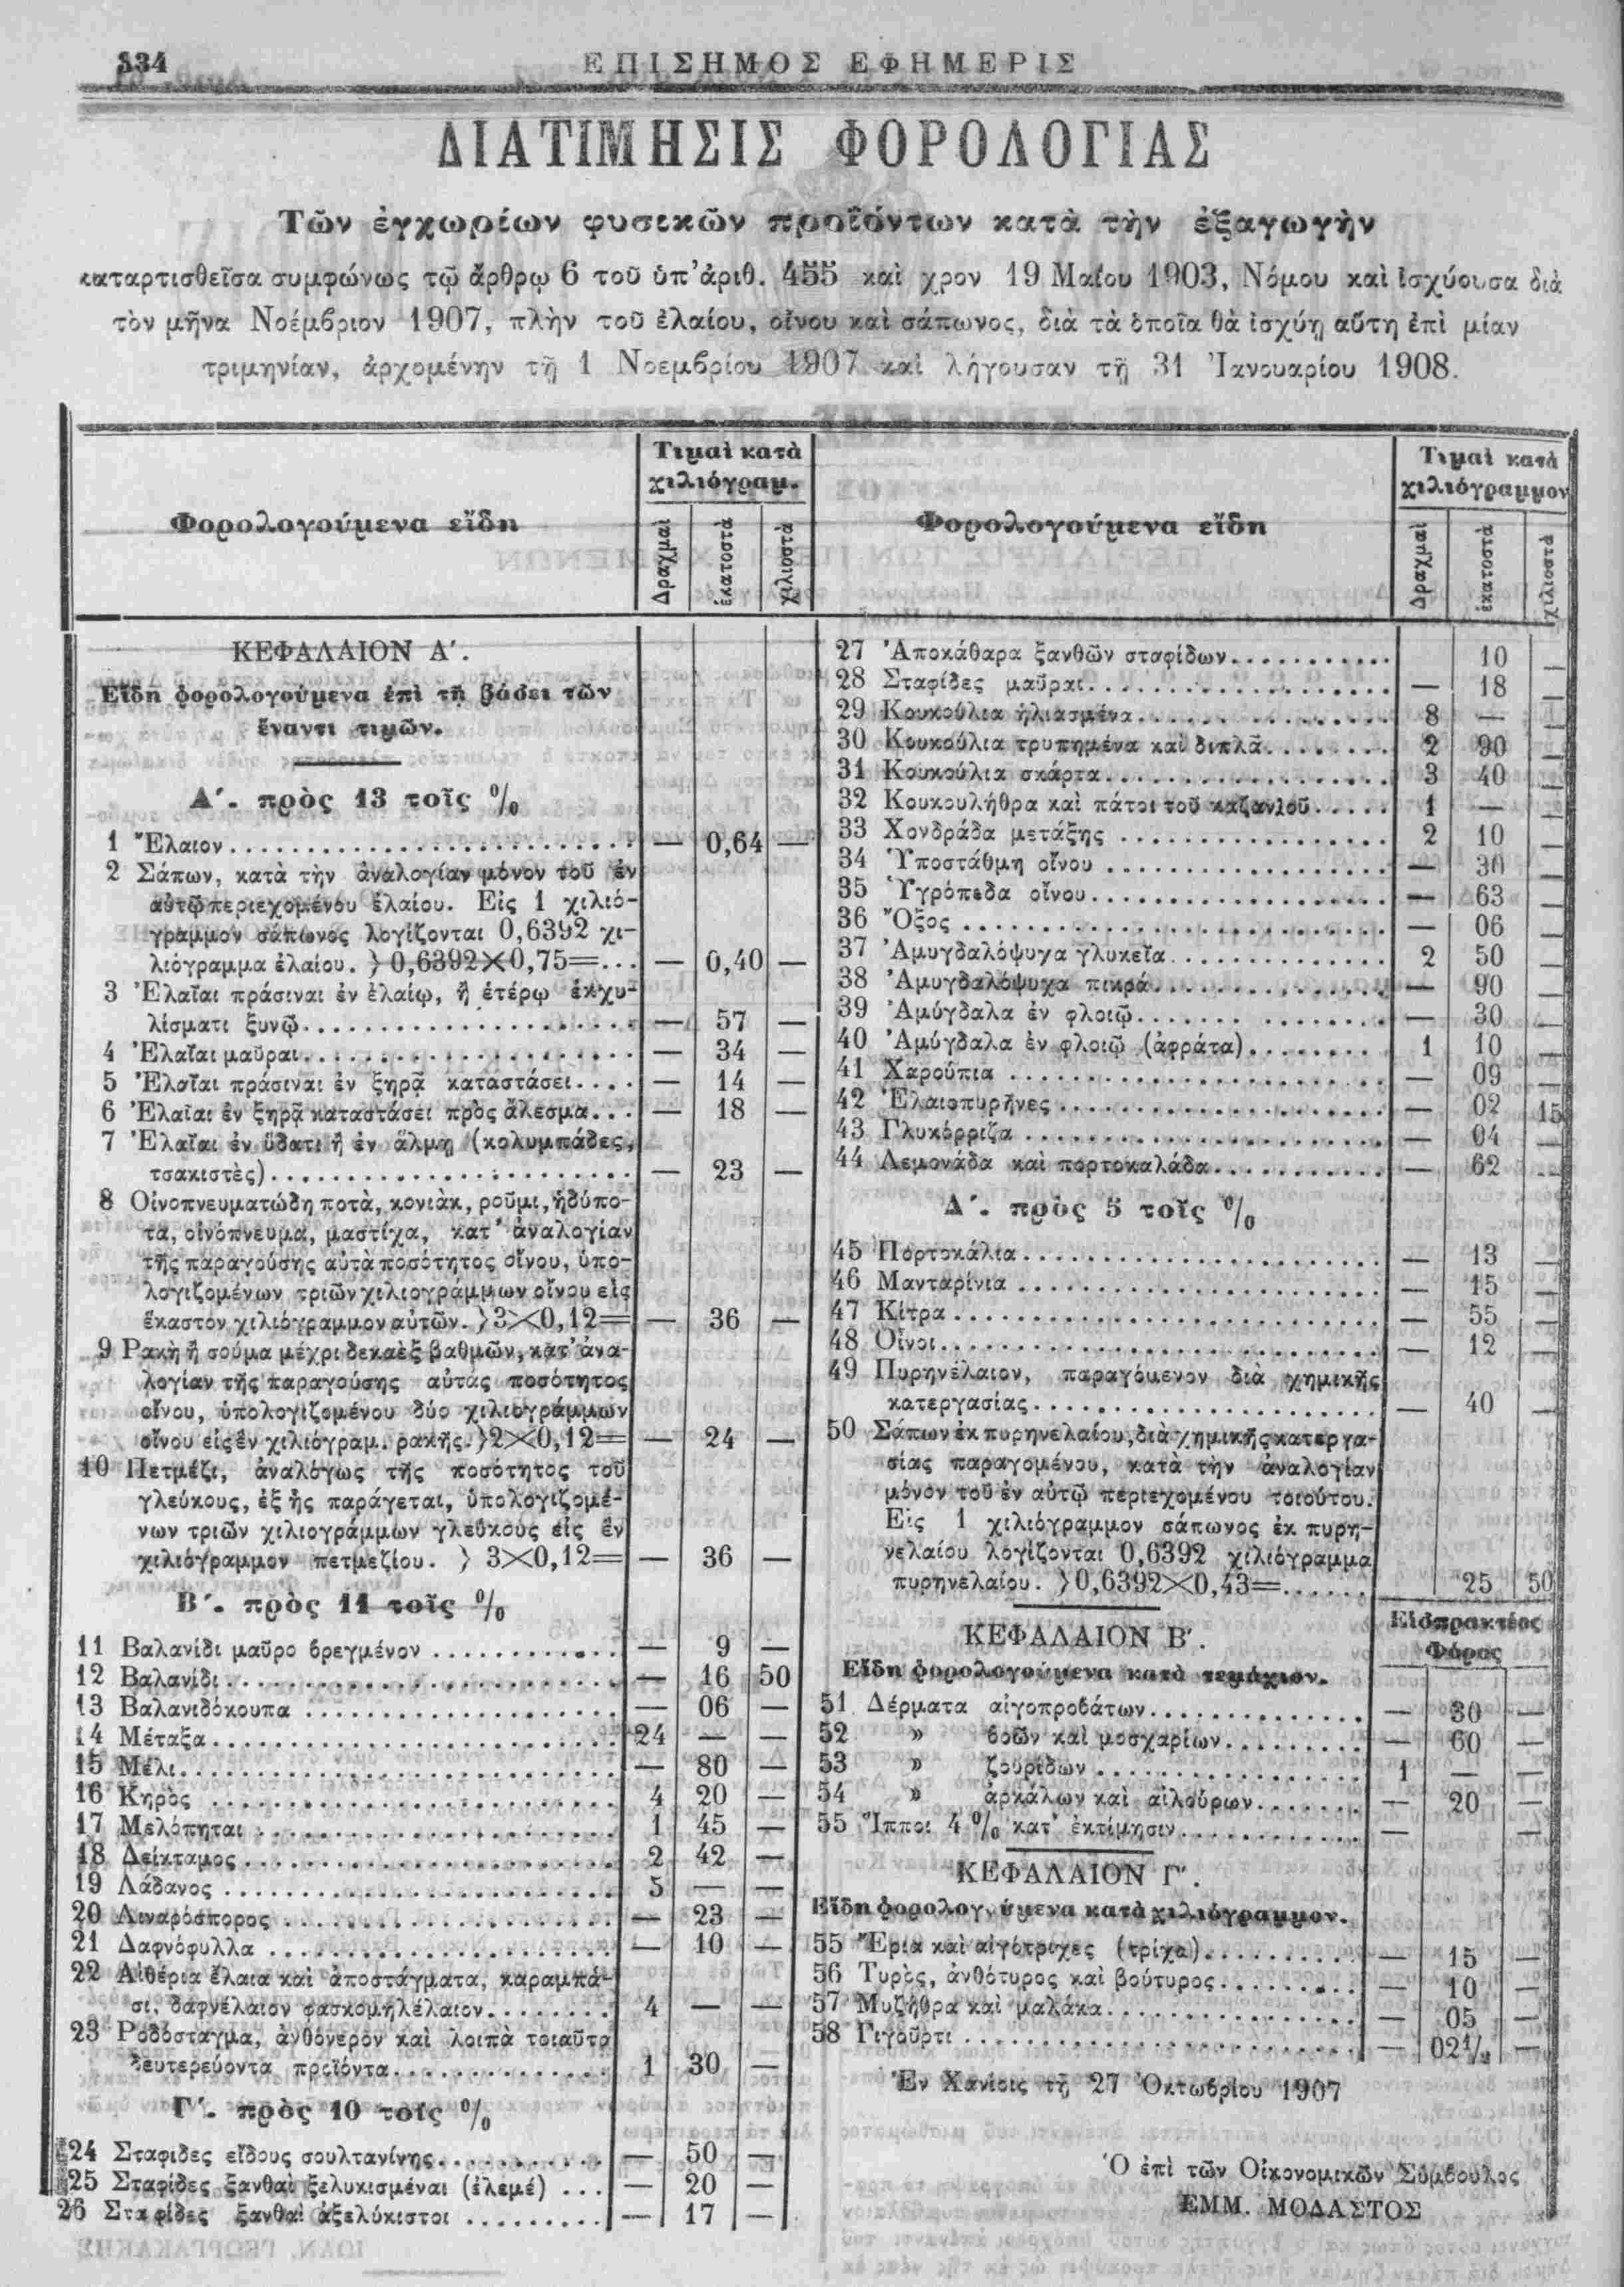 334
ΕΠΙΣΗΜΟΣ ΕΦΗΜΕΡΙΣ
ΔΙΑΤΙΜΗΣΙΣ ΦΟΡΟΛΟΓΙΑΣ
Τῶν ἐγχωρίων φυσικῶν προϊόντων κατὰ τὴν ἐξαγωγὴν
καταρτισθεῖσα συμφώνως τῷ ἄρθρῳ 6 τοῦ ὑπ' ἀριθ. 455 καὶ χρον 19 Μαΐου 1903, Νόμου καὶ ἰσχύουσα διὰ
τὸν μῆνα Νοέμβριον 1907, πλὴν τοῦ ἐλαίου, οἴνου καὶ σάπωνος, διὰ τὰ ὁποῖα θὰ ἰσχύῃ αὕτη ἐπὶ μίαν
τριμηνίαν, ἀρχομένην τῇ 1 Νοεμβρίου 1907 καὶ λήγουσαν τῇ 31 Ἰανουαρίου 1908.
Φορολογούμενα εἴδη
Τιμαὶ κατὰ
χιλιόγραμ.
Δραχμαὶ
ἑκατοστὰ
χιλιοστὰ
ΚΕΦΑΛΑΙΟΝ Α΄.
Εἴδη φορολογούμενα ἐπὶ τῇ βάσει τῶν
ἔναντι τιμῶν.
Α΄. πρὸς 13 τοῖς %
1 Ἔλαιον........ — 0,64 —
2 Σάπων, κατὰ τὴν ἀναλογίαν μόνον τοῦ ἐν
αὐτῷ περιεχομένου ἐλαίου. Εἰς 1 χιλιό-
γραμμον σάπωνος λογίζονται 0,6392 χι-
λιόγραμμα ἐλαίου. } 0,6392×0,75=... — 0,40 —
3 Ἐλαῖαι πράσιναι ἐν ἐλαίῳ, ἢ ἑτέρῳ ἐκχυ-
λίσματι ξυνῷ........ — 57 —
4 Ἐλαῖαι μαῦραι........ — 34 —
5 Ἐλαῖαι πράσιναι ἐν ξηρᾷ καταστάσει.... — 14 —
6 Ἐλαῖαι ἐν ξηρᾷ καταστάσει πρὸς ἄλεσμα... — 18 —
7 Ἐλαῖαι ἐν ὕδατι ἢ ἐν ἅλμῃ (κολυμπάδες,
τσακιστὲς)........ — 23 —
8 Οἰνοπνευματώδη ποτὰ, κονιὰκ, ροῦμι, ἡδύπο-
τα, οἰνόπνευμα, μαστίχα, κατ' ἀναλογίαν
τῆς παραγούσης αὐτὰ ποσότητος οἴνου, ὑπο-
λογιζομένων τριῶν χιλιογράμμων οἴνου εἰς
ἕκαστον χιλιόγραμμον αὐτῶν. }3×0,12= — 36 —
9 Ρακὴ ἢ σούμα μέχρι δεκαὲξ βαθμῶν, κατ' ἀνα-
λογίαν τῆς παραγούσης αὐτὰς ποσότητος
οἴνου, ὑπολογιζομένου δύο χιλιογράμμων
οἴνου εἰς ἓν χιλιόγραμ. ρακῆς. }2×0,12= — 24 —
10 Πετμέζι, ἀναλόγως τῆς ποσότητος τοῦ
γλεύκους, ἐξ ἧς παράγεται, ὑπολογιζομέ-
νων τριῶν χιλιογράμμων γλεύκους εἰς ἓν
χιλιόγραμμον πετμεζίου. } 3×0,12= — 36 —
Β΄. πρὸς 11 τοῖς %
11 Βαλανίδι μαῦρο βρεγμένον........ — 9 —
12 Βαλανίδι........ — 16 50
13 Βαλανιδόκουπα........ — 06 —
14 Μέταξα........ 24 — —
15 Μέλι........ — 80 —
16 Κηρὸς........ 4 20 —
17 Μελόπηται........ 1 45 —
18 Δείκταμος........ 2 42 —
19 Λάδανος........ 5 — —
20 Λιναρόσπορος........ — 23 —
21 Δαφνόφυλλα........ — 10 —
22 Αἰθέρια ἔλαια καὶ ἀποστάγματα, καραμπά-
σι, δαφνέλαιον φασκομηλέλαιον........ 4 — —
23 Ροδόσταγμα, ἀνθόνερον καὶ λοιπὰ τοιαῦτα
δευτερεύοντα προϊόντα........ 1 30 —
Γ΄. πρὸς 10 τοῖς %
24 Σταφιδες εἴδους σουλτανίνης........ — 50 —
25 Σταφίδες ξανθαὶ ξελυκισμέναι (ἐλεμέ) ... — 20 —
26 Σταφίδες ξανθαὶ ἀξελύκιστοι........ — 17 —
Φορολογούμενα εἴδη
Τιμαὶ κατὰ
χιλιόγραμμον
Δραχμαὶ
ἑκατοστὰ
χιλιοστὰ
27 Ἀποκάθαρα ξανθῶν σταφίδων........ 10 —
28 Σταφίδες μαῦραι........ — 18 —
29 Κουκούλια ἡλιασμένα........ 8 — —
30 Κουκούλια τρυπημένα καὶ διπλᾶ........ 2 90 —
31 Κουκούλια σκάρτα........ 3 40 —
32 Κουκουλήθρα καὶ πάτοι τοῦ καζανίοῦ..... 1 — —
33 Χονδράδα μετάξης........ 2 10 —
34 Ὑποστάθμη οἴνου........ — 30 —
35 Ὑγρόπεδα οἴνου........ — 63 —
36 Ὄξος........ — 06 —
37 Ἀμυγδαλόψυχα γλυκεῖα........ 2 50 —
38 Ἀμυγδαλόψυχα πικρά........ — 90 —
39 Ἀμύγδαλα ἐν φλοιῷ........ — 30 —
40 Ἀμύγδαλα ἐν φλοιῷ (ἀφράτα)........ 1 10 —
41 Χαρούπια........ — 09 —
42 Ἐλαιοπυρῆνες........ — 02 15
43 Γλυκόρριζα........ — 04 —
44 Λεμονάδα καὶ πορτοκαλάδα........ — 62 —
Δ΄. πρὸς 5 τοῖς %
45 Πορτοκάλια........ — 13 —
46 Μανταρίνια........ — 15 —
47 Κίτρα........ — 55 —
48 Οἶνοι........ — 12 —
49 Πυρηνέλαιον, παραγόμενον διὰ χημικῆς
κατεργασίας........ — 40 —
50 Σάπων ἐκ πυρηνελαίου, διὰ χημικῆς κατεργα-
σίας παραγομένου, κατὰ τὴν ἀναλογίαν
μόνον τοῦ ἐν αὐτῷ περιεχομένου τοιούτου.
Εἰς 1 χιλιόγραμμον σάπωνος ἐκ πυρη-
νελαίου λογίζονται 0,6392 χιλιόγραμμα
πυρηνελαίου. }0,6392×0,43=...... 25 50
ΚΕΦΑΛΑΙΟΝ Β΄.
Εἰσπρακτέος
Φόρος
Εἴδη φορολογούμενα κατὰ τεμάχιον.
51 Δέρματα αἰγοπροβάτων........ — 30 —
52 » βοῶν καὶ μοσχαρίων........ — 60 —
53 » ζουρίδων........ 1 — —
54 » ἀρκάλων καὶ αἰλούρων........ — 20 —
55 Ἵπποι 4 % κατ' ἐκτίμησιν........ — —
ΚΕΦΑΛΑΙΟΝ Γ΄.
Εἴδη φορολογούμενα κατὰ χιλιόγραμμον.
55 Ἔρια καὶ αἰγότριχες (τρίχα)........ — 15 —
56 Τυρὸς, ἀνθότυρος καὶ βούτυρος........ — 10 —
57 Μυζήθρα καὶ μαλάκα........ — 05 —
58 Γιγοῦρτι........ — 02½ —
Ἐν Χανίοις τῇ 27 Ὀκτωβρίου 1907
Ὁ ἐπὶ τῶν Οἰκονομικῶν Σύμβουλος
ΕΜΜ. ΜΟΔΑΣΤΟΣ